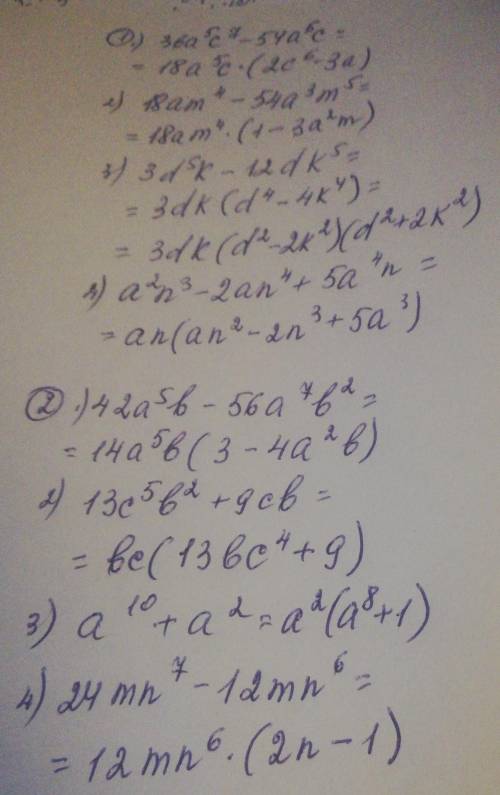 1.) 36a⁵c⁷ - 54a⁶c =
= 18a⁵c · (2c⁶ - 3a)
2) 18am⁴ - 54a³m⁵ =
= 18am⁴ · (1 - 3a²m)
3) 3d⁵k - 12dk⁵ =
= 3dk(d⁴ - 4k⁴) =
= 3dk(d² - 2k²)(d² + 2k²)
a²n³ - 2an⁴ + 5a⁴n =
= an(an² - 2n³ + 5a³)
2.) 42a⁵b - 56a⁷b² =
= 14a⁵b(3 - 4a²b)
2) 13c⁵b² + 9cb =
= bc(13bc⁴ + 9)
3) a¹⁰ + a² = a²(a⁸ + 1)
4) 24mn⁷ - 12mn⁶ =
= 12mn⁶ · (2n - 1)